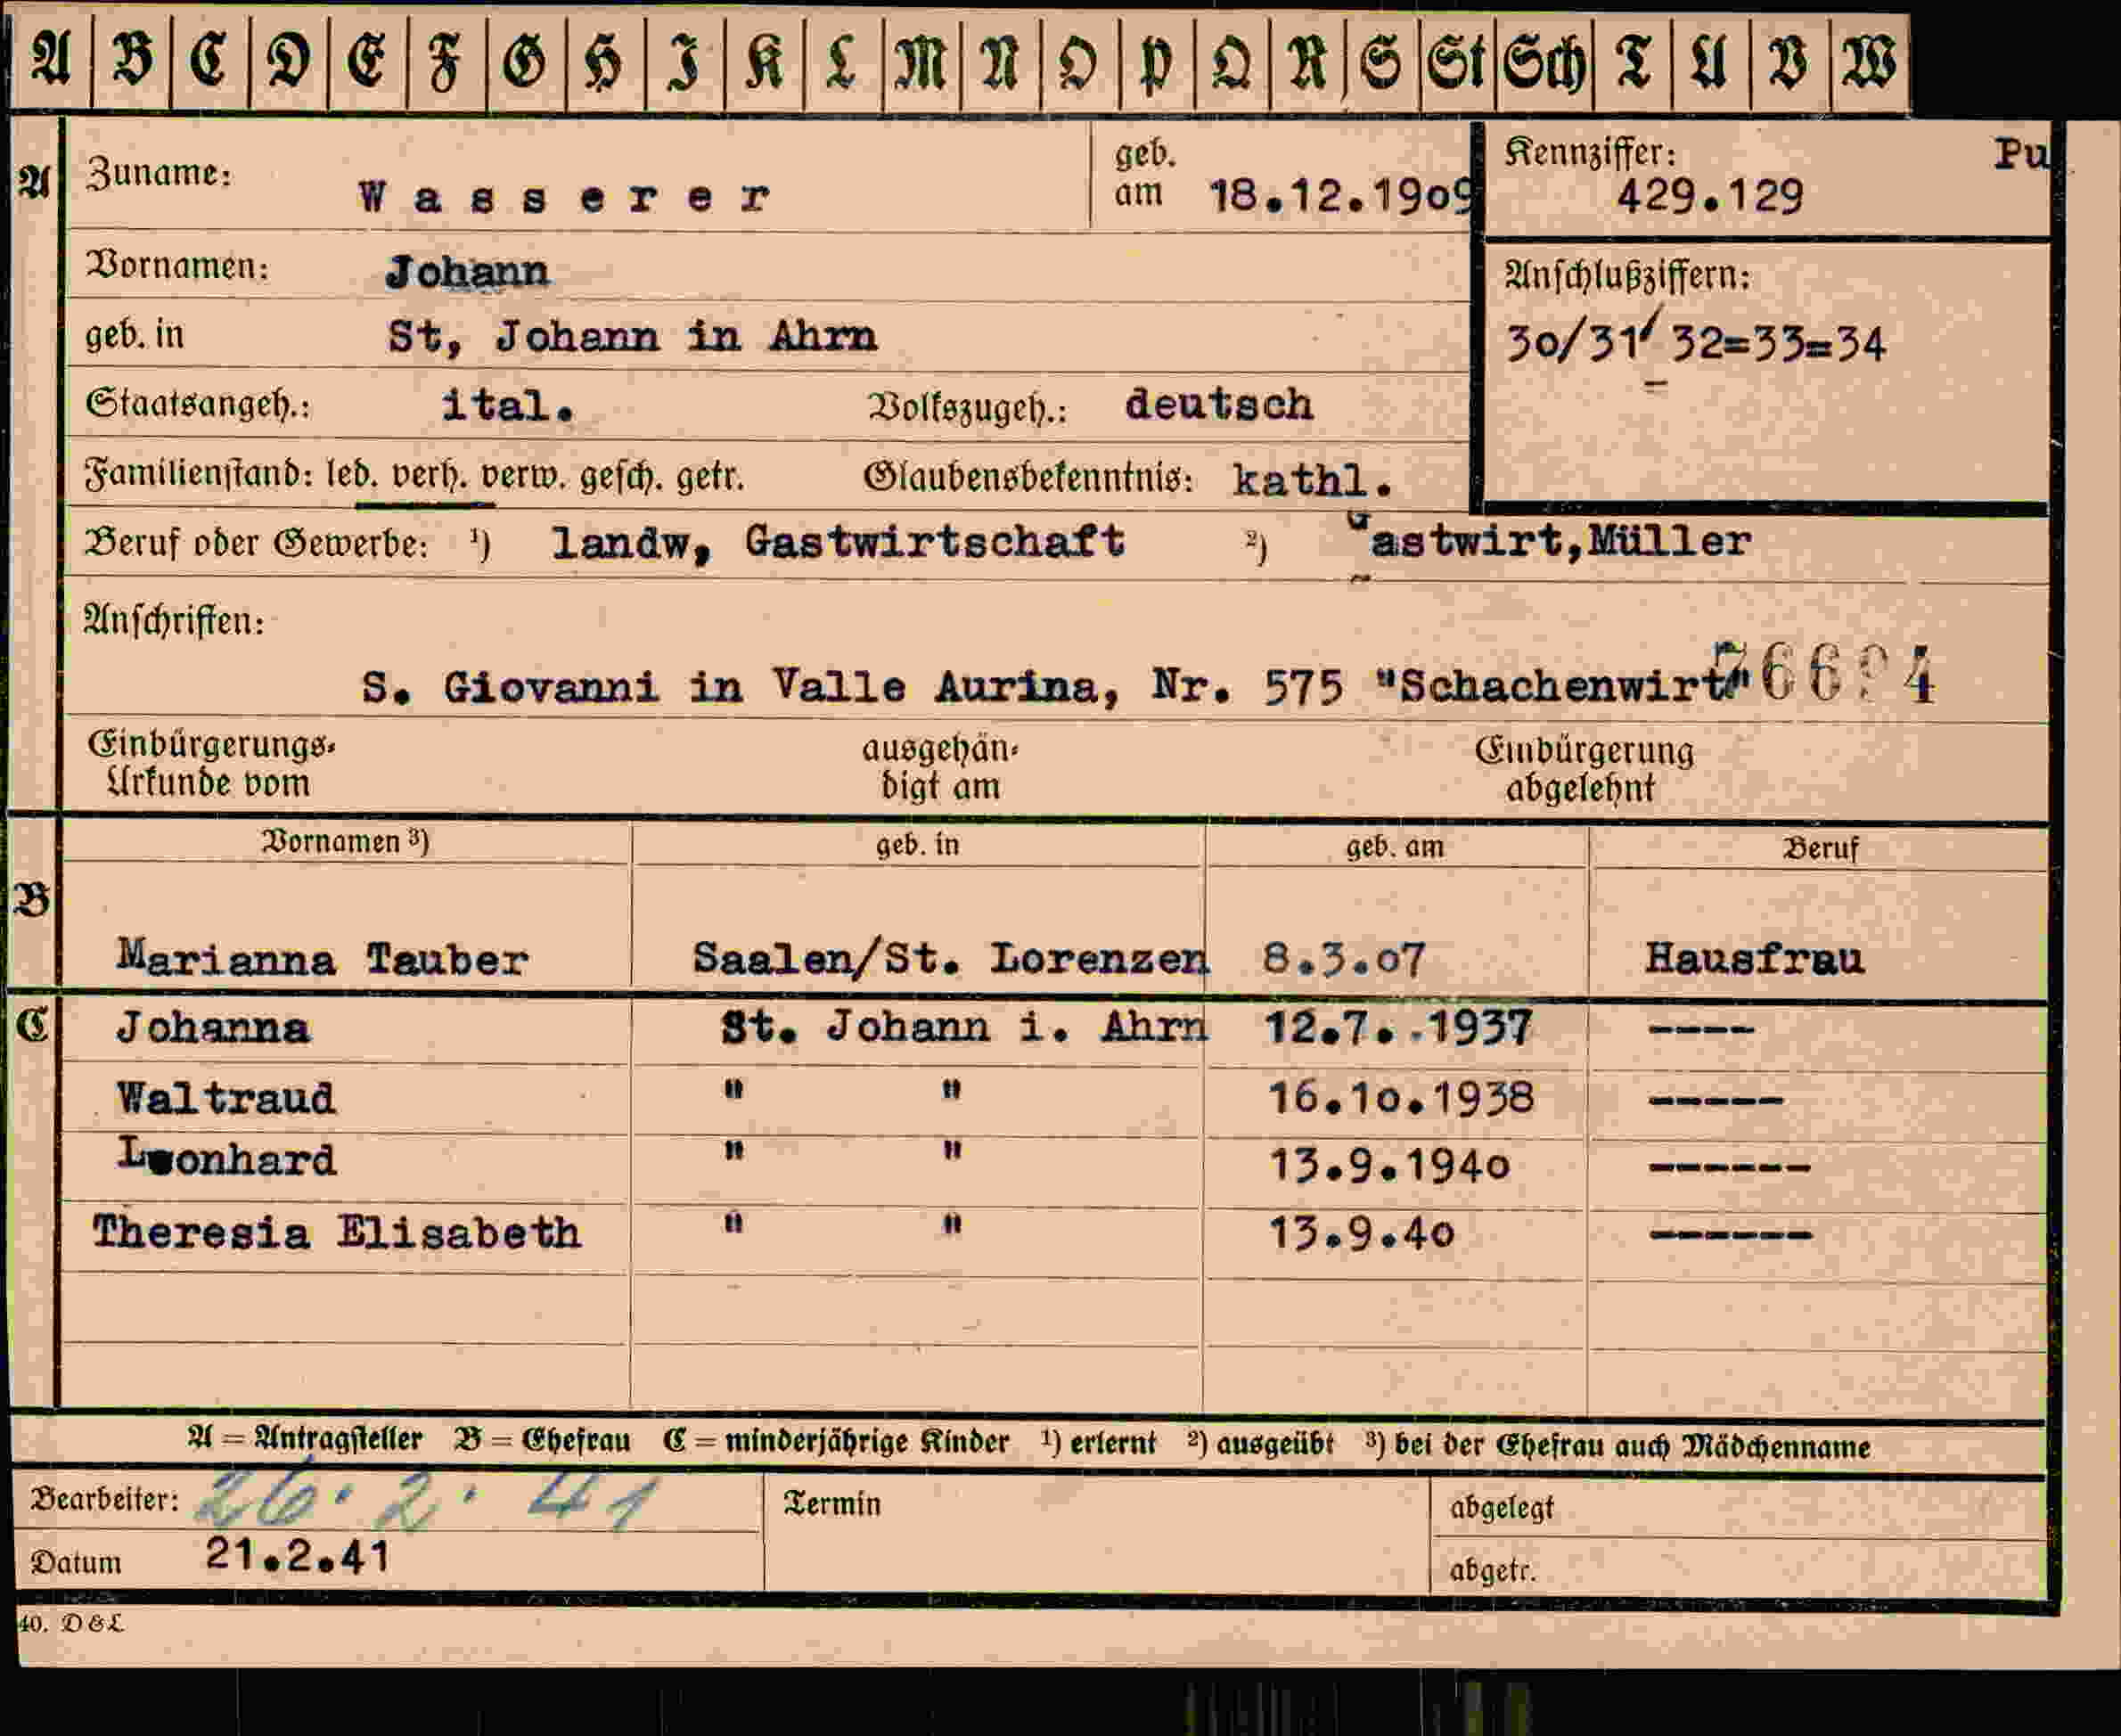 A B C D E F G H I K L M N O P Q R S St Sch T U V W
A Zuname: Wasserer geb. am 18.12.19o9 Kennziffer: 429.129 Pu
Vornamen: Johann Anschlußziffern:
geb. in St, Johann in Ahrn 3o/31/ 32=33=34
Staatsangeh.: ital. Volkszugeh.: deutsch
Familienstand: led. verh. verw. gesch. getr. Glaubensbekenntnis: kathl.
Beruf oder Gewerbe: ¹) landw, Gastwirtschaft ²) Gastwirt,Müller
Anschriften:
S. Giovanni in Valle Aurina, Nr. 575 "Schachenwirt"
Einbürgerungs- Urkunde vom ausgehän- digt am Einbürgerung abgelehnt
Vornamen ³) geb. in geb. am Beruf
B
Marianna Tauber Saalen/St. Lorenzen 8.3.o7 Hausfrau
C Johanna St. Johann i. Ahrn 12.7. .1937 ----
Waltraud " " 16.1o.1938 -----
Leonhard " " 13.9.194o ------
Theresia Elisabeth " " 13.9.4o ------
A = Antragsteller B = Ehefrau C = minderjährige Kinder ¹) erlernt ²) ausgeübt ³) bei der Ehefrau auch Mädchenname
Bearbeiter: 26. 2. 41 Termin abgelegt
Datum 21.2.41 abgetr.
40. D&L